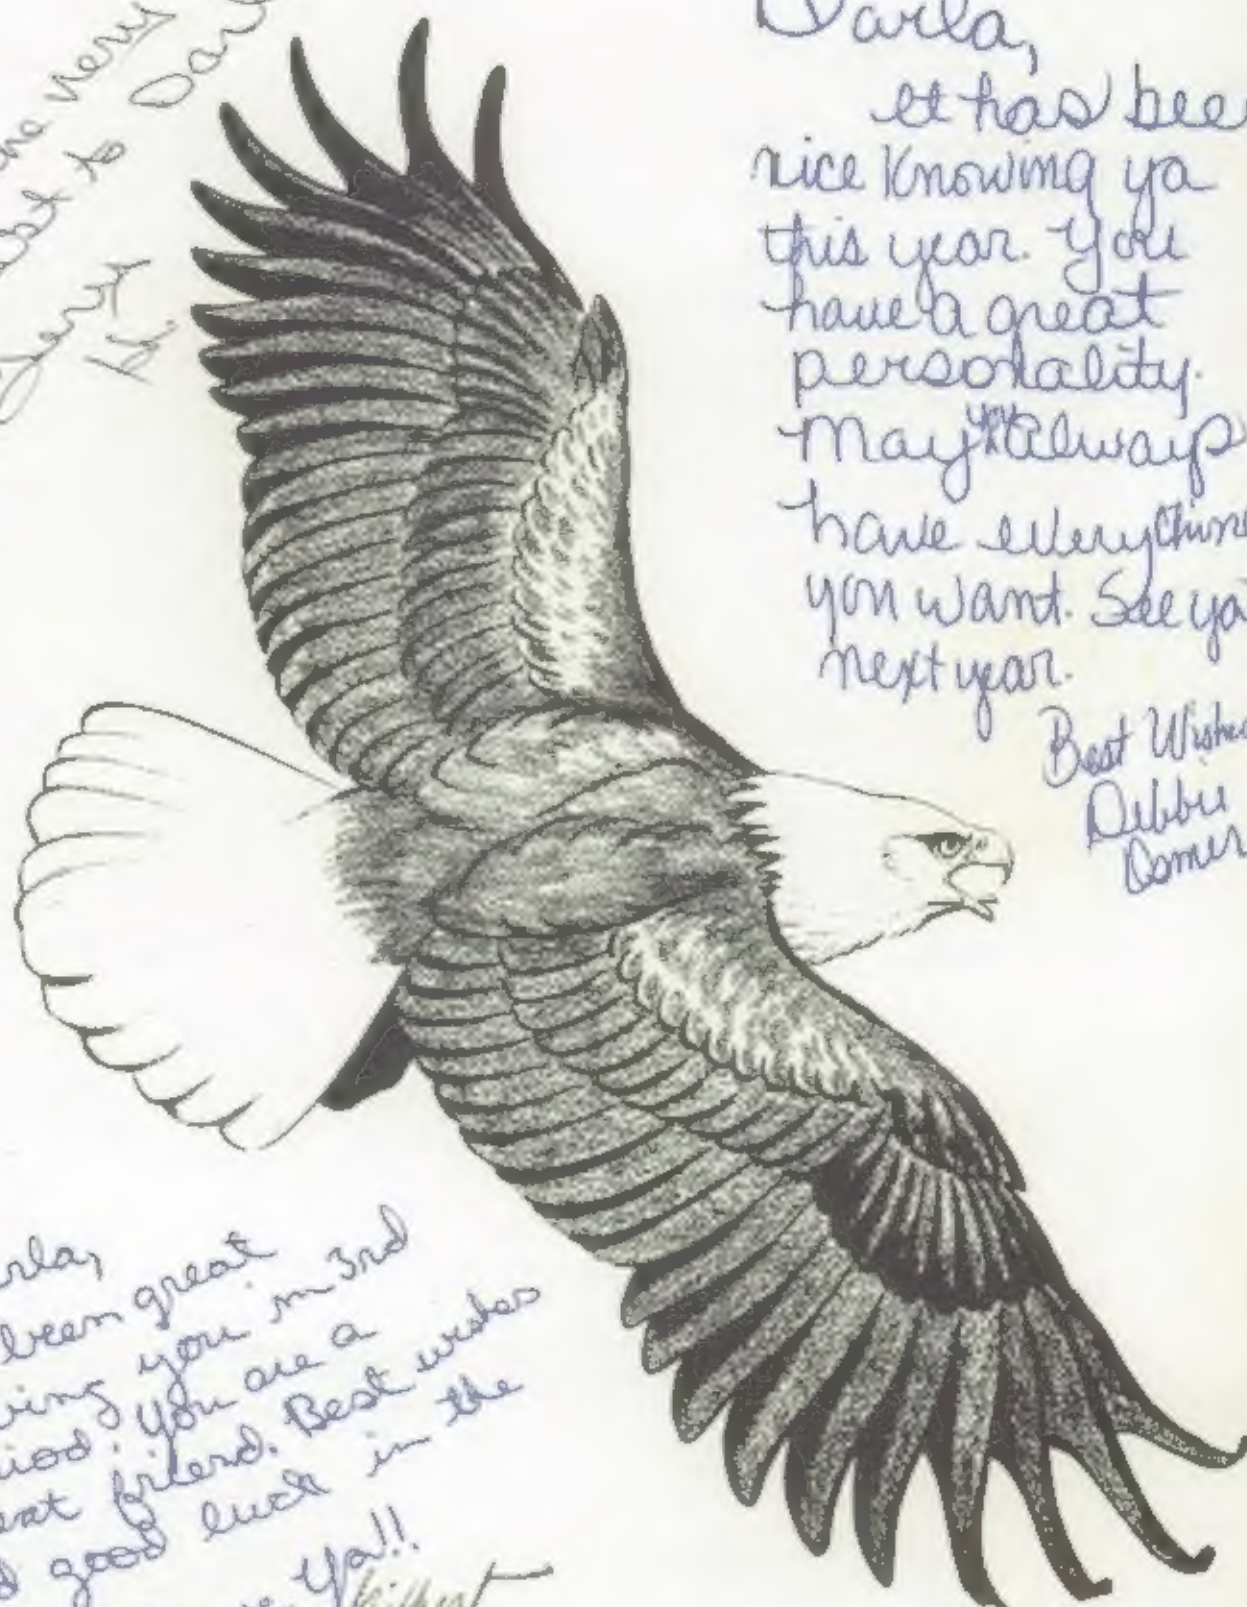 very
to Darl
Darla,
It has bee
nice knowing ya
this year. You
have a great
personality.
May you always
have everything
you want. See ya
next year.
Best Wishes
Debbie
rla,
been great
ving you in 3rd
riod. You are a
eat friend. Best wishes
d good luck in the
Ya!!